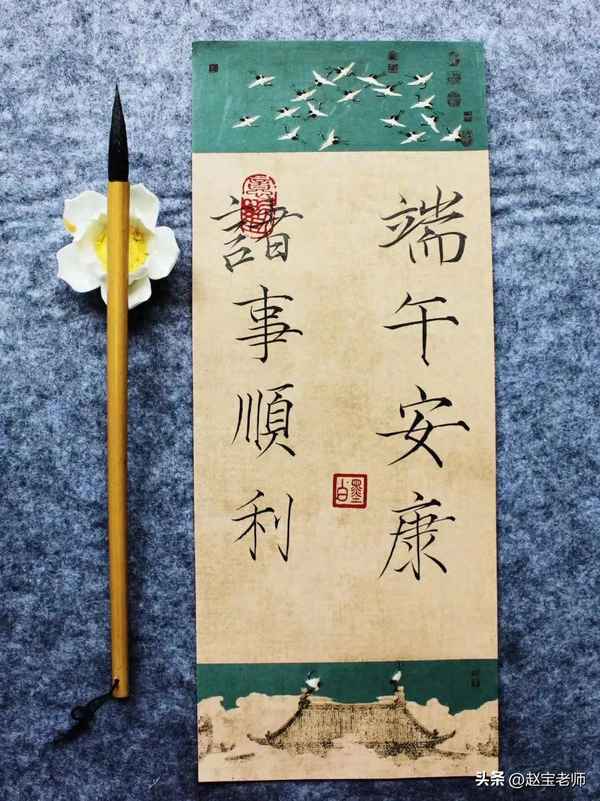 端午安康
諸事順利
头条 @赵宝老师